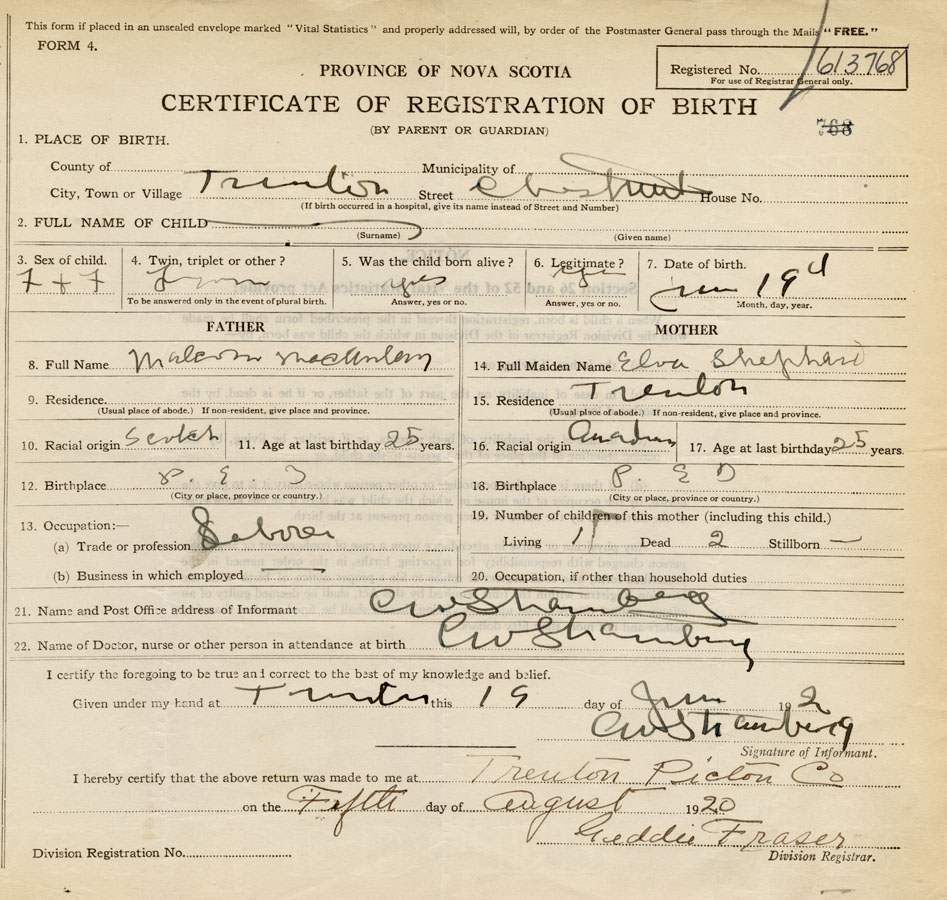 This form if placed in an unsealed envelope marked "Vital Statistics" and properly addressed will, by order of the Postmaster General pass through the Mails "FREE."
FORM 4.
Registered No. 613768
For use of Registrar General only.
PROVINCE OF NOVA SCOTIA
CERTIFICATE OF REGISTRATION OF BIRTH
768
(BY PARENT OR GUARDIAN)
1. PLACE OF BIRTH.
County of Municipality of
City, Town or Village Trenton Street Chestnut House No.
(If birth occurred in a hospital, give its name instead of Street and Number)
2. FULL NAME OF CHILD
(Surname) (Given name)
3. Sex of child. 4. Twin, triplet or other? 5. Was the child born alive? 6. Legitimate? 7. Date of birth.
F + F Twin yes yes June 19
To be answered only in the event of plural birth. Answer, yes or no. Answer, yes or no. Month, day, year.
FATHER MOTHER
8. Full Name Malcolm 14. Full Maiden Name Elva Shephard
9. Residence 15. Residence Trenton
(Usual place of abode.) If non-resident, give place and province. (Usual place of abode.) If non-resident, give place and province.
10. Racial origin Scotch 11. Age at last birthday 25 years. 16. Racial origin Canadian 17. Age at last birthday 25 years.
12. Birthplace P. E I 18. Birthplace P. E I
(City or place, province or country.) (City or place, province or country.)
13. Occupation:— 19. Number of children of this mother (including this child.)
(a) Trade or profession Laborer Living Dead 2 Stillborn —
(b) Business in which employed 20. Occupation, if other than household duties
21. Name and Post Office address of Informant C W Stramberg
22. Name of Doctor, nurse or other person in attendance at birth C W Stramberg
I certify the foregoing to be true and correct to the best of my knowledge and belief.
Given under my hand at Trenton this 19 day of June 19 2
C W Stramberg
Signature of Informant.
I hereby certify that the above return was made to me at Trenton Pictou Co
on the Fifth day of August 1920
Geddie Fraser
Division Registrar.
Division Registration No.